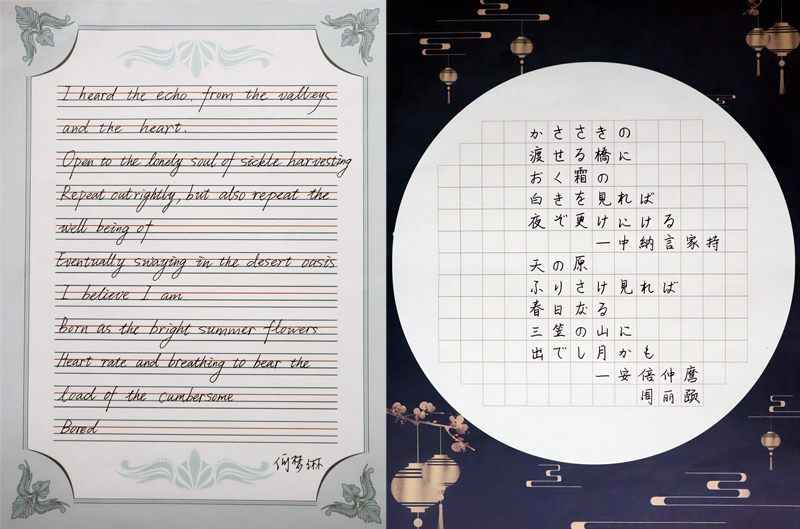 I heard the echo, from the valleys
and the heart.
Open to the lonely soul of sickle harvesting
Repeat outrightly, but also repeat the
well being of
Eventually swaying in the desert oasis
I believe I am
Born as the bright summer flowers
Heart rate and breathing to bear the
load of the cumbersome
Bored
何梦琳
かささきの
渡せる橋に
おく霜の
白きを見れば
夜ぞ更けにける
一中納言家持
天の原
ふりさけ見れば
春日なる
三笠の山に
出でし月かも
一安倍仲麿
周丽颐